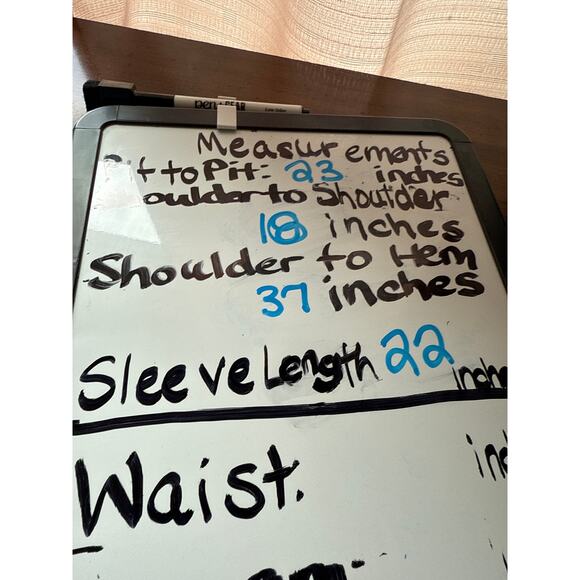 PEN+GEAR
Measurements
Pit to Pit: 23 inches
oulder to Shoulder
18 inches
Shoulder to Hem
37 inches
Sleeve Length 22 inche
Waist.